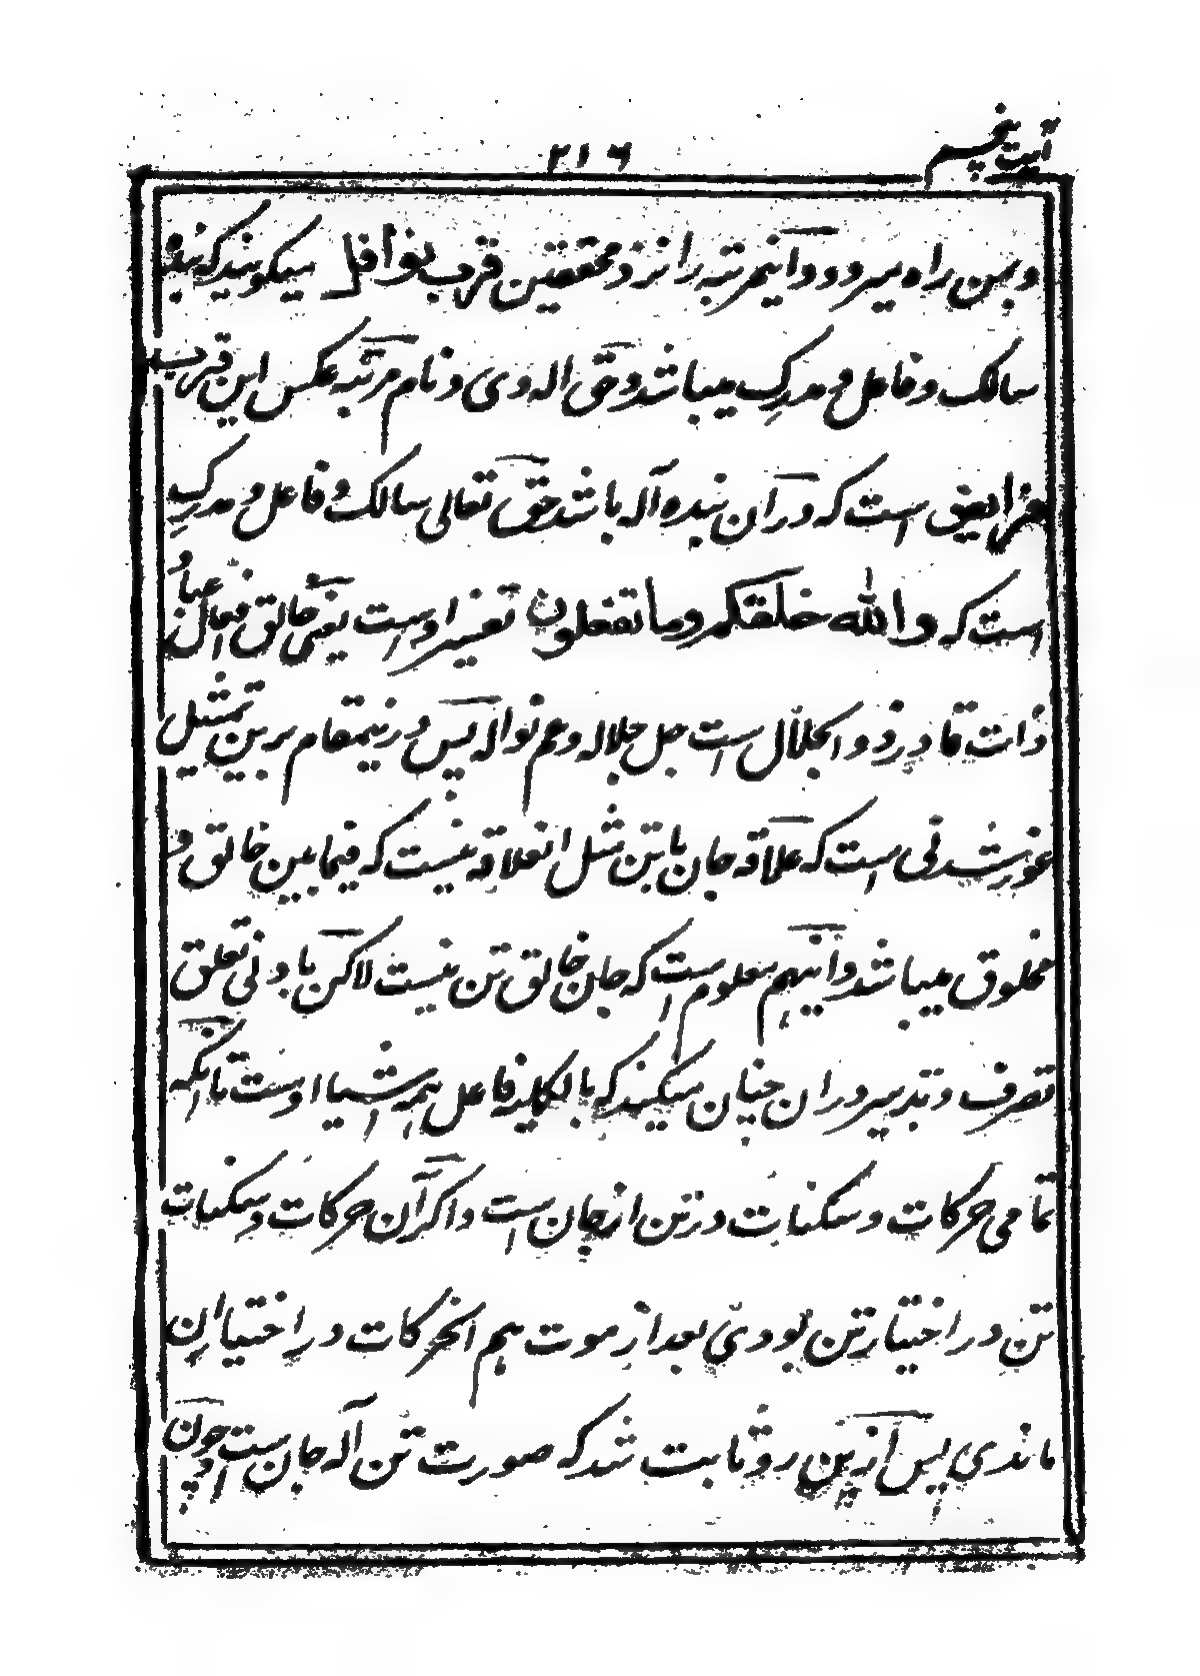 آیت پنجم
۲۱۶
و بهمین راه میرود و اینمرتبه را نزد محققین قرب نوافل میگویند که بنده
سالک و فاعل و مدرک میباشد و حق اله وی و نام مرتبه عکس این قرب
فرایض است که در آن بنده آله باشد حق تعالی سالک و فاعل و مدرک
است که والله خلقکم وما تفعلون تفسیر اوست یعنی خالق افعال عباد
ذات قادر ذو الجلال است جل جلاله و عم نواله پس درینمقام برین تمثیل
خورشدنی است که علاقه جان با تن مثل انعلاقه نیست که فیمابین خالق و
مخلوق میباشد و اینهم معلوم است که جان خالق تن نیست لاکن با دنی تعلق
تصرف و تدبیر در ان چنان میکند که بالکلیه فاعل همه اشیا اوست تا انکه
تمامی حرکات و سکنات در تن از جان است و اگر آن حرکات و سکنات
تن در اختیار تن بودی بعد از موت هم انحرکات در اختیار ان
ماندی پس ازین رو ثابت شد که صورت تن آله جان است و چون